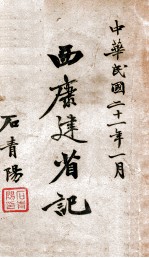 中華民國二十一年一月
西康建省記
石青陽